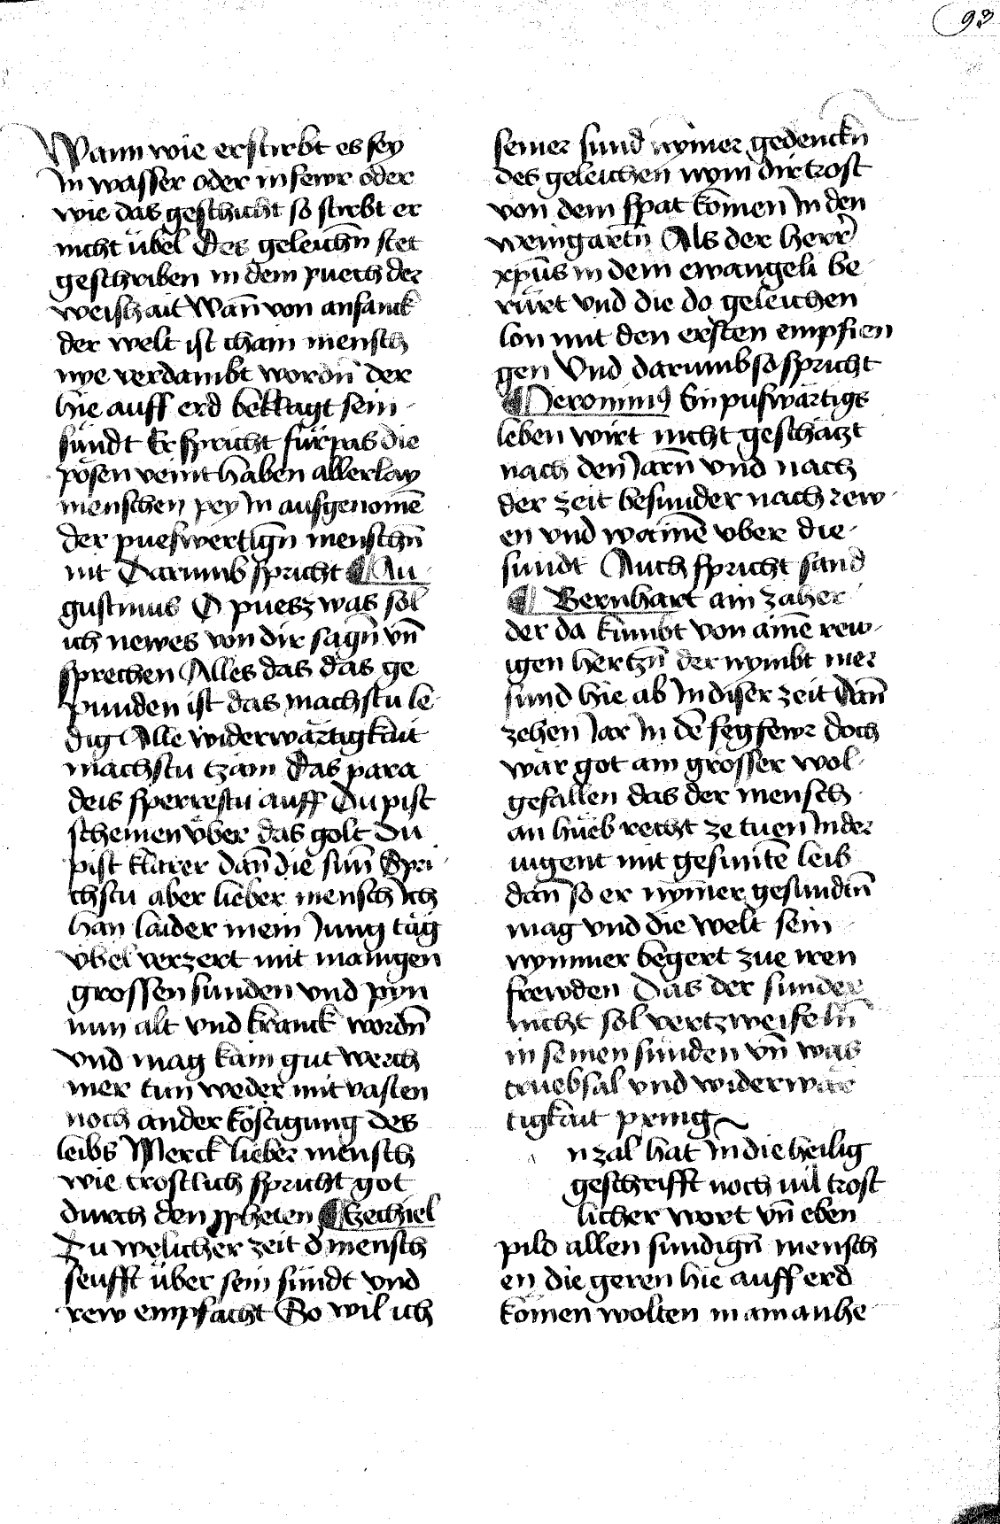 93
Wann wie er stirbt es sey
in wasser oder in fewr oder
wie das geschicht so stirbt er
nicht übel Des geleichñ stet
geschriben in dem puech der
weishait Wañ von anfanck
der welt ist chain mensch
nye verdambt wordñ der
hie auff erd beklagt sein
sündt Er spricht fürpas die
pösen veint haben allerlay
menschen pey in aufgenomē
der puefwertigñ menschñ
nit Darumb spricht ¶ Au
gustinus O puesz was sol
ich newes von dir sagñ vñ
sprechen Alles das das ge
punden ist das machstu le
dig Alle widerwärtigkait
machstu tzam Das para
deis sperrestu auff Du pist
scheinen über das golt Du
pist klarer dañ die suñ Spri
chstu aber lieber mensch Ich
han laider mein Jung täg
übel verzert mit manigen
grossen sunden vnd pyn
nun alt vnd kranck wordñ
vnd mag kain gut werch
mer tun weder mit vasten
noch ander köstigung des
leibs Merck lieber mensch
wie trostlich spricht got
durch den ppheten ¶ Ezechiel
Zu welicher zeit d mensch
seufft über sein sündt vnd
rew empfacht So wil ich
seiner sund nymer gedenckñ
des geleichen nym dir trost
von dem spat komen In den
weingartñ Als der herr
xpūs in dem ewangeli be
rürt vnd die do geleichen
lon mit den ersten empfien
gen Vnd darumb so spricht
¶ Jeronimus Ein pufwärtigs
leben wirt nicht geschäczt
nach den Jarñ vnd nach
der zeit besunder nach rew
en vnd wainē vber die
sundt Auch spricht sand
¶ Bernhart ain zaher
der da kumbt von ainē rew
igen hertzñ der nymbt mer
sund hie ab In diser zeit dañ
zehen Jar In dē fegfewr doch
wär got ain grosser wol
gefallen das der mensch
an hüeb recht ze tuen In der
iugent mit gesuntē leib
dañ so er nymer gesundtñ
mag vnd die welt sein
nymmer begert zue iren
frewden Das der sunder
nicht sol vertzweifelñ
in seinen sunden vñ was
truebsal vnd widerwär
tigkait pring
n zal hat in die heilig
geschrifft noch vil trost
licher wort vñ eben
pild allen sundigñ mensch
en die geren hie auff erd
komen wolten in ain anhe